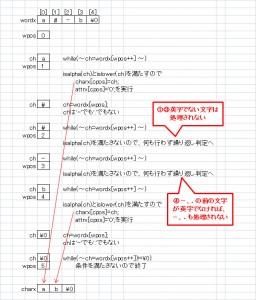 [0] [1] [2] [3] [4]
wordx a # - b ¥0
wpos 0
ch a while(～ch=wordx[wpos++] ～)
wpos 1
isalpha(ch)とislower(ch)を満たすので
charx[cpos]=ch;
attrx[cpos]='0';を実行
ch # ch=wordx[wpos];
chは'-'でも'.'でもない
①③英字でない文字は
処理されない
ch # while(～ch=wordx[wpos++] ～)
wpos 2
isalpha(ch)を満たさないので、何も行わず繰り返し判定へ
ch - while(～ch=wordx[wpos++] ～)
wpos 3
isalpha(ch)を満たさないので、何も行わず繰り返し判定へ
④-、.の前の文字
が英字でなければ、
-、.も処理されない
ch b while(～ch=wordx[wpos++] ～)
wpos 4
isalpha(ch)とislower(ch)を満たすので
charx[cpos]=ch;
attrx[cpos]='0';を実行
ch ¥0 ch=wordx[wpos];
chは'-'でも'.'でもない
ch ¥0 while(～ch=wordx[wpos++])!=¥0)
wpos 5 条件を満たさないので終了
charx a b ¥0